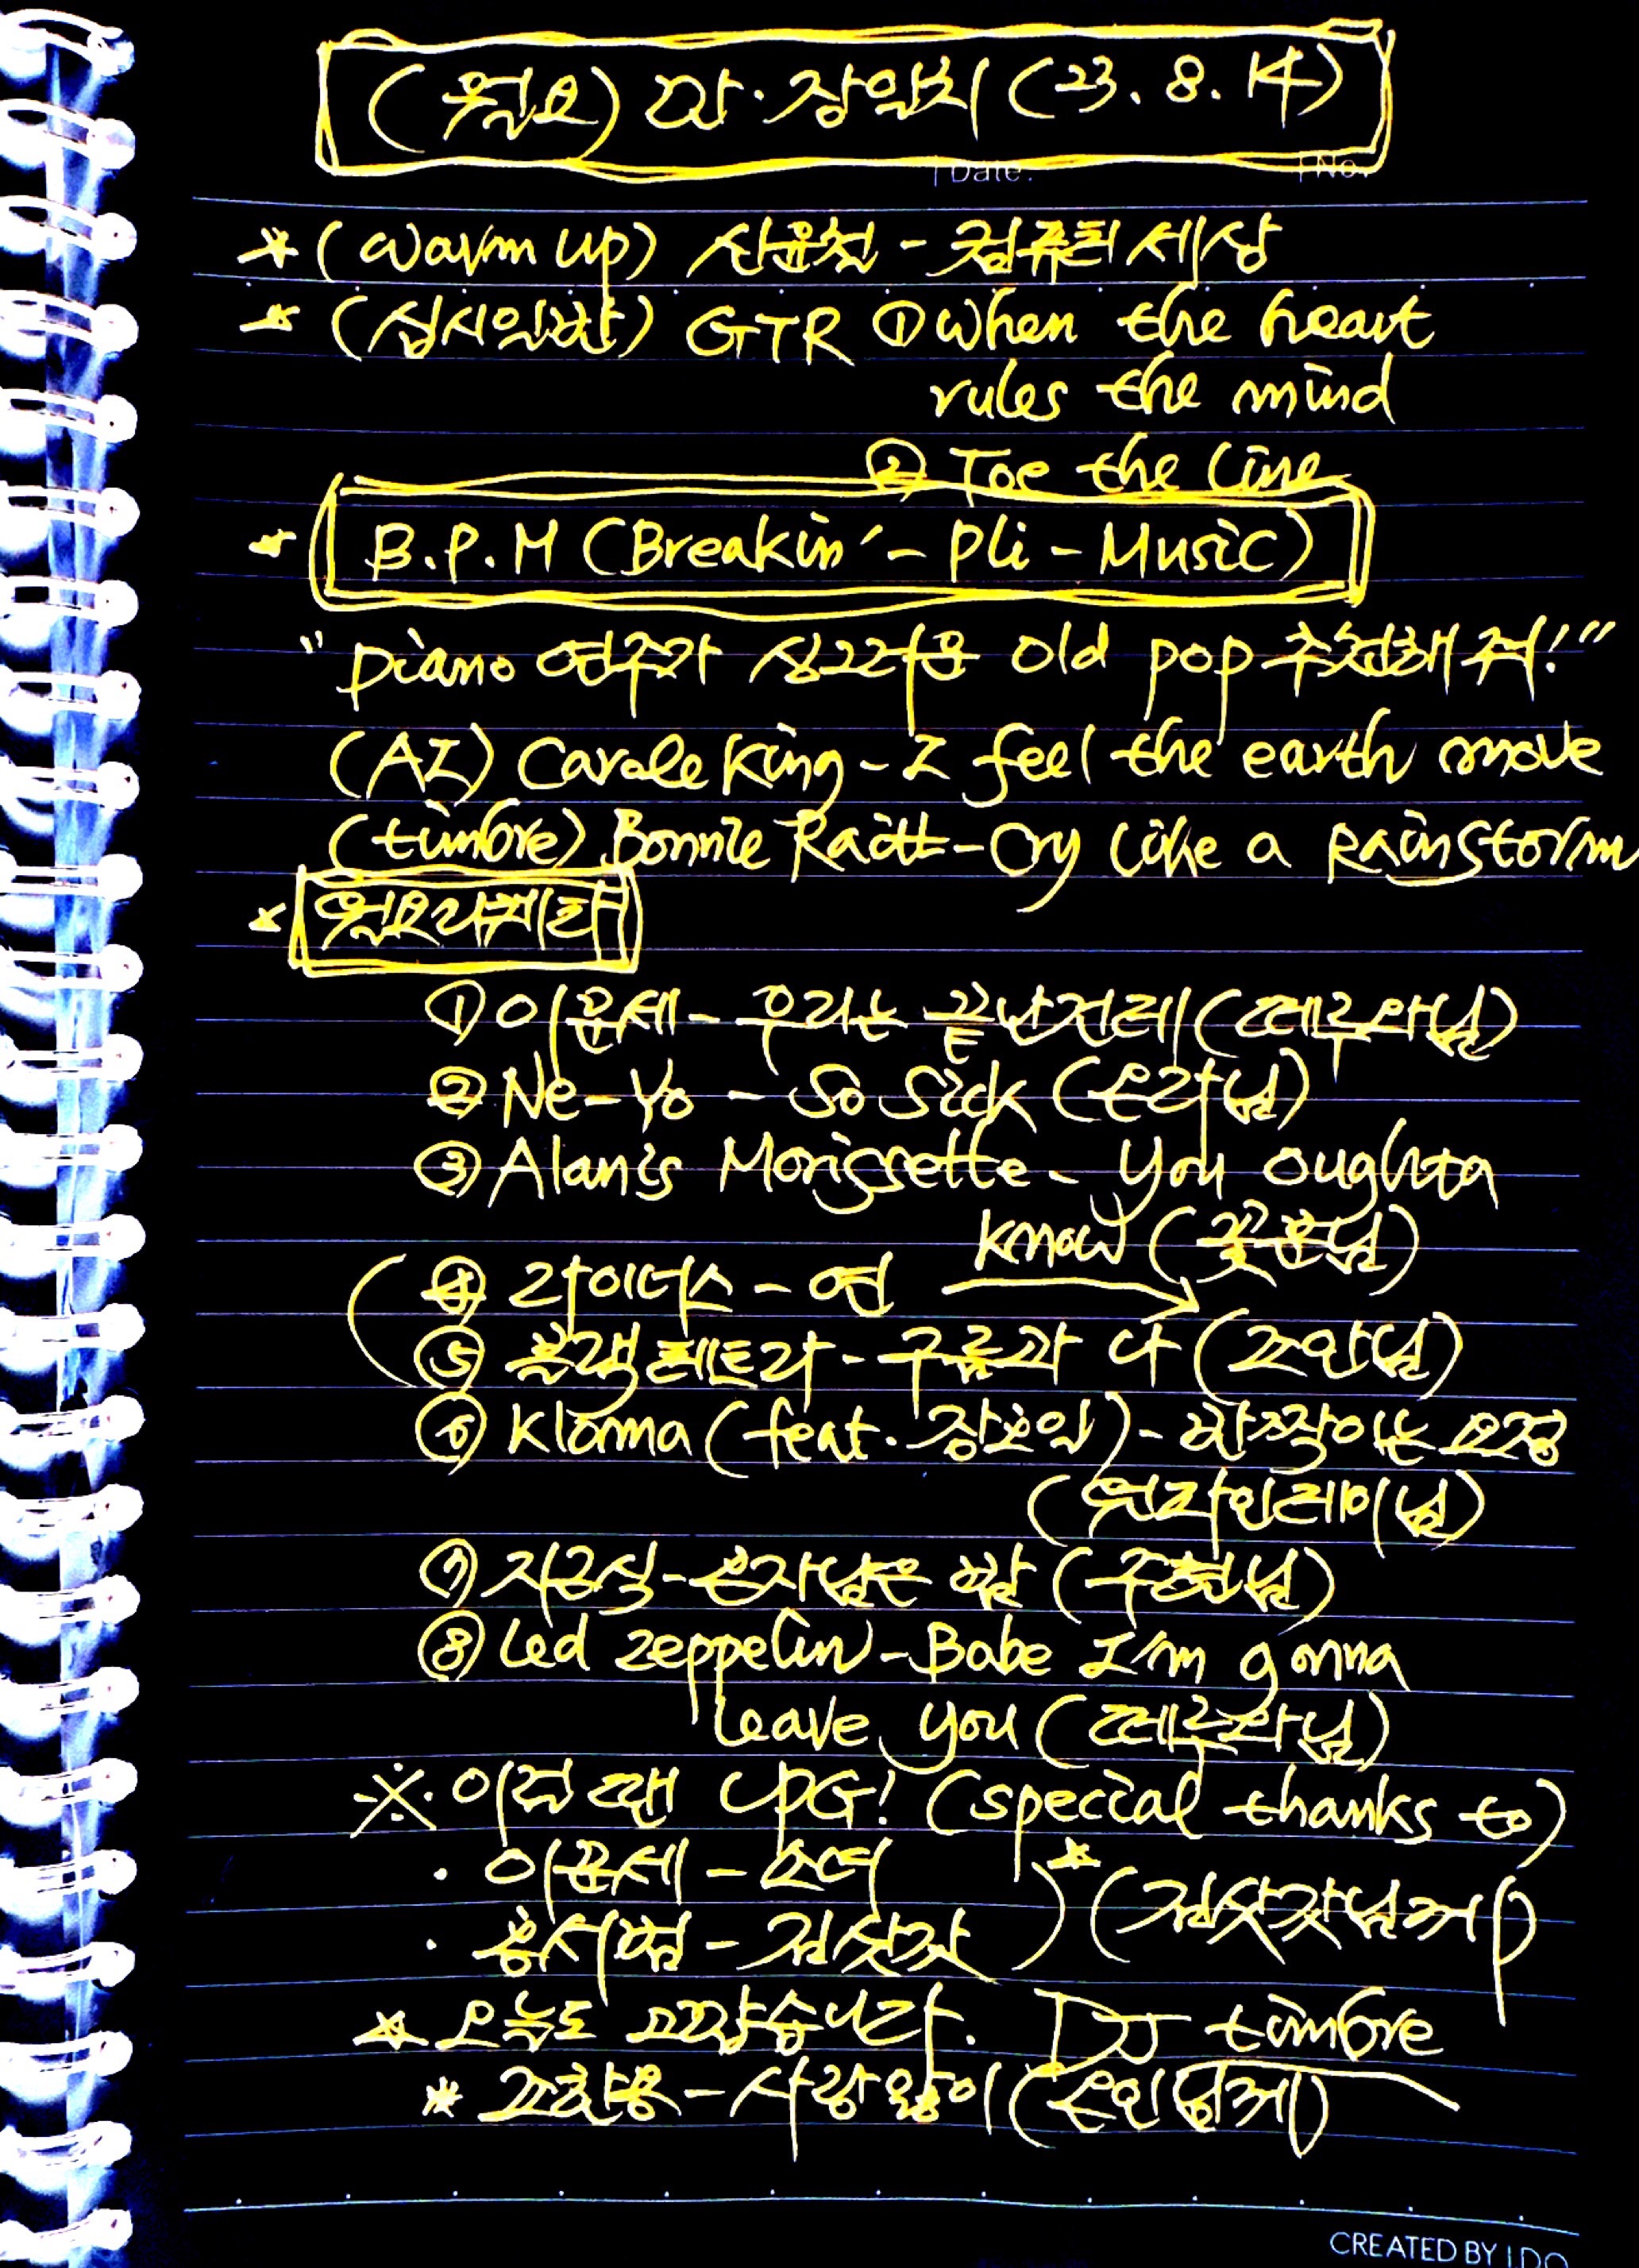 (월요) 깐·장일치 (23. 8. 14)
Date. No.
* (Warm up) 신윤철 - 컴퓨터 세상
* (십시일깐) GTR ① When the heart
rules the mind
② Toe the line
* B.P.M (Breakin' - pli - Music)
"piano 연주가 싱그러운 old pop 추천해줘!"
(AI) Carole King - I feel the earth move
(timbre) Bonnie Raitt - Cry like a Rainstorm
* 월요라캐티
① 이윤세 - 우리는 끝난거래 (님)
② Ne-Yo - So Sick (님)
③ Alanis Morissette - You oughta
know (꽃님)
④ 라이너스 - 연
⑤ 블랙테트라 - 구름과 나 (님)
⑥ Kloma (feat. 장효인) - 반짝이는 요정
(님)
⑦ 지금상 - 혼자 남은 밤 (주현님)
⑧ Led zeppelin - Babe I'm gonna
leave you (님)
※. 이런 땐 UPG! (special thanks to)
· 이윤세 - 소녀
· 홍서범 - 김삿갓 ) * (김삿갓님께)
* 오늘도 고맙습니다. DJ timbre
* 고한우 - 사랑 (님께)
CREATED BY I DO